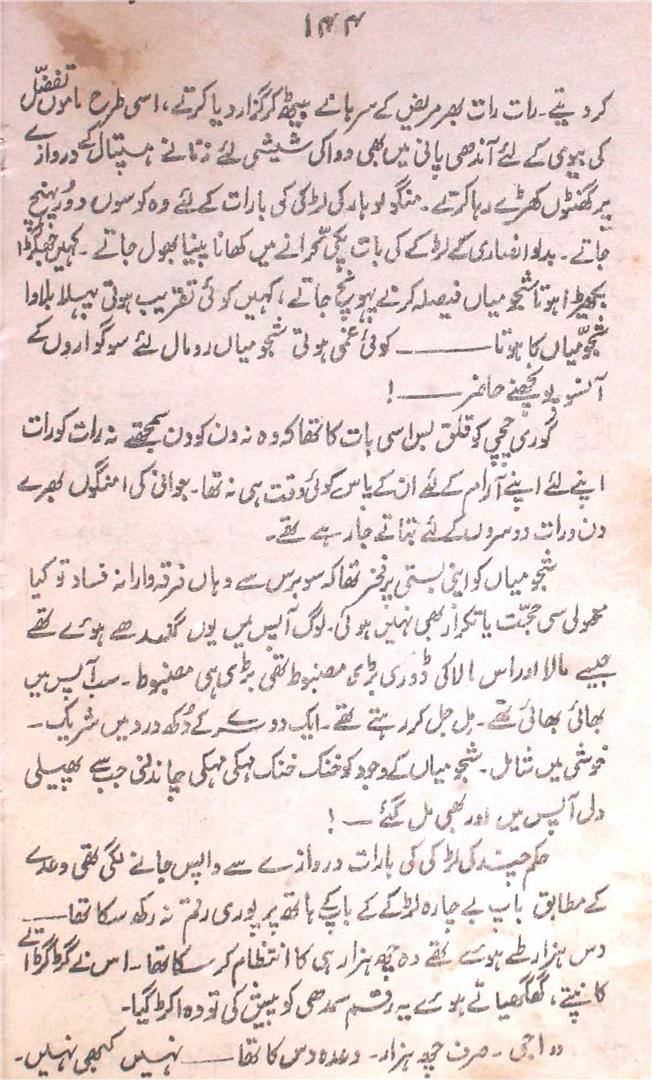 ۱۴۴
کر دیتے۔ رات رات بھر مریض کے سرہانے بیٹھ کر گزار دیا کرتے، اسی طرح ماموں تفضّل
کی بیوی کے لئے آندھی پانی میں بھی دوا کی شیشی لئے زنانے ہسپتال کے دروازے
پر گھنٹوں کھڑے رہا کرتے۔ منگو لوہار کی لڑکی کی بارات کے لئے وہ کوسوں دور پہنچ
جاتے۔ بدلو انصاری کے لڑکے کی بات پکی کرانے میں کھانا پینا بھول جاتے۔ کہیں جھگڑا
بکھیڑا ہوتا شجو میاں فیصلہ کرنے پہونچ جاتے، کہیں کوئی تقریب ہوتی پہلا بلاوا
شجو میاں کا ہوتا ——— کوئی غمی ہوتی شجو میاں رومال لئے سوگواروں کے
آنسو پونچھنے حاضر ——!
گوری چچی کو قلق بس اسی بات کا تھا کہ وہ نہ دن کو دن سمجھتے نہ رات کو رات
اپنے لئے اپنے آرام کے لئے ان کے پاس کوئی وقت ہی نہ تھا۔ جوانی کی امنگوں بھرے
دن و رات دوسروں کے لئے بتاتے جا رہے تھے۔
شجو میاں کو اپنی بستی پر فخر تھا کہ سو برس سے وہاں فرقہ وارانہ فساد تو کیا
معمولی سی حجّت یا تکرار بھی نہیں ہوئی۔ لوگ آپس میں یوں گندھے ہوئے تھے
جیسے مالا اور اس مالا کی ڈوری بڑی مضبوط تھی بڑی ہی مضبوط۔ سب آپس میں
بھائی بھائی تھے۔ مل جل کر رہتے تھے۔ ایک دوسرے کے دُکھ درد میں شریک۔
خوشی میں شامل۔ شجو میاں کے وجود کو خنک خنک مہکی مہکی چاندنی جب سے پھیلی
دل آپس میں اور بھی مل گئے —!
حکم چند کی لڑکی کی بارات دروازے سے واپس جانے لگی تھی وعدے
کے مطابق باپ بے چارہ لڑکے کے باپ کے ہاتھ پر پوری رقم نہ رکھ سکا تھا —
دس ہزار طے ہوئے تھے وہ چھ ہزار ہی کا انتظام کر سکا تھا۔ اس نے گڑگڑاتے
کانپتے، گھگھیاتے ہوئے یہ رقم سمدھی کو پیش کی تو وہ اکڑ گیا۔
"اجی۔ صرف چھ ہزار۔ وعدہ دس کا تھا —— نہیں کبھی نہیں۔